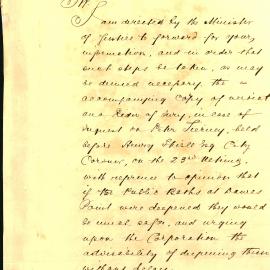 Sir,
I am directed by the Minister
of Justice to forward for your
information, and in order that
such steps be taken, as may
be deemed necessary, the
accompanying copy of verdict
and Rider of Jury, in case of
Inquest on Peter Tierney, held
before Henry Shiell Esq City
Coroner, on the 23rd Ultimo,
with reference to opinion that
if the Public Baths at Dawes
Point were deepened they would
be safer, and urging
upon the Corporation the
advisability of deepening them
without delay.